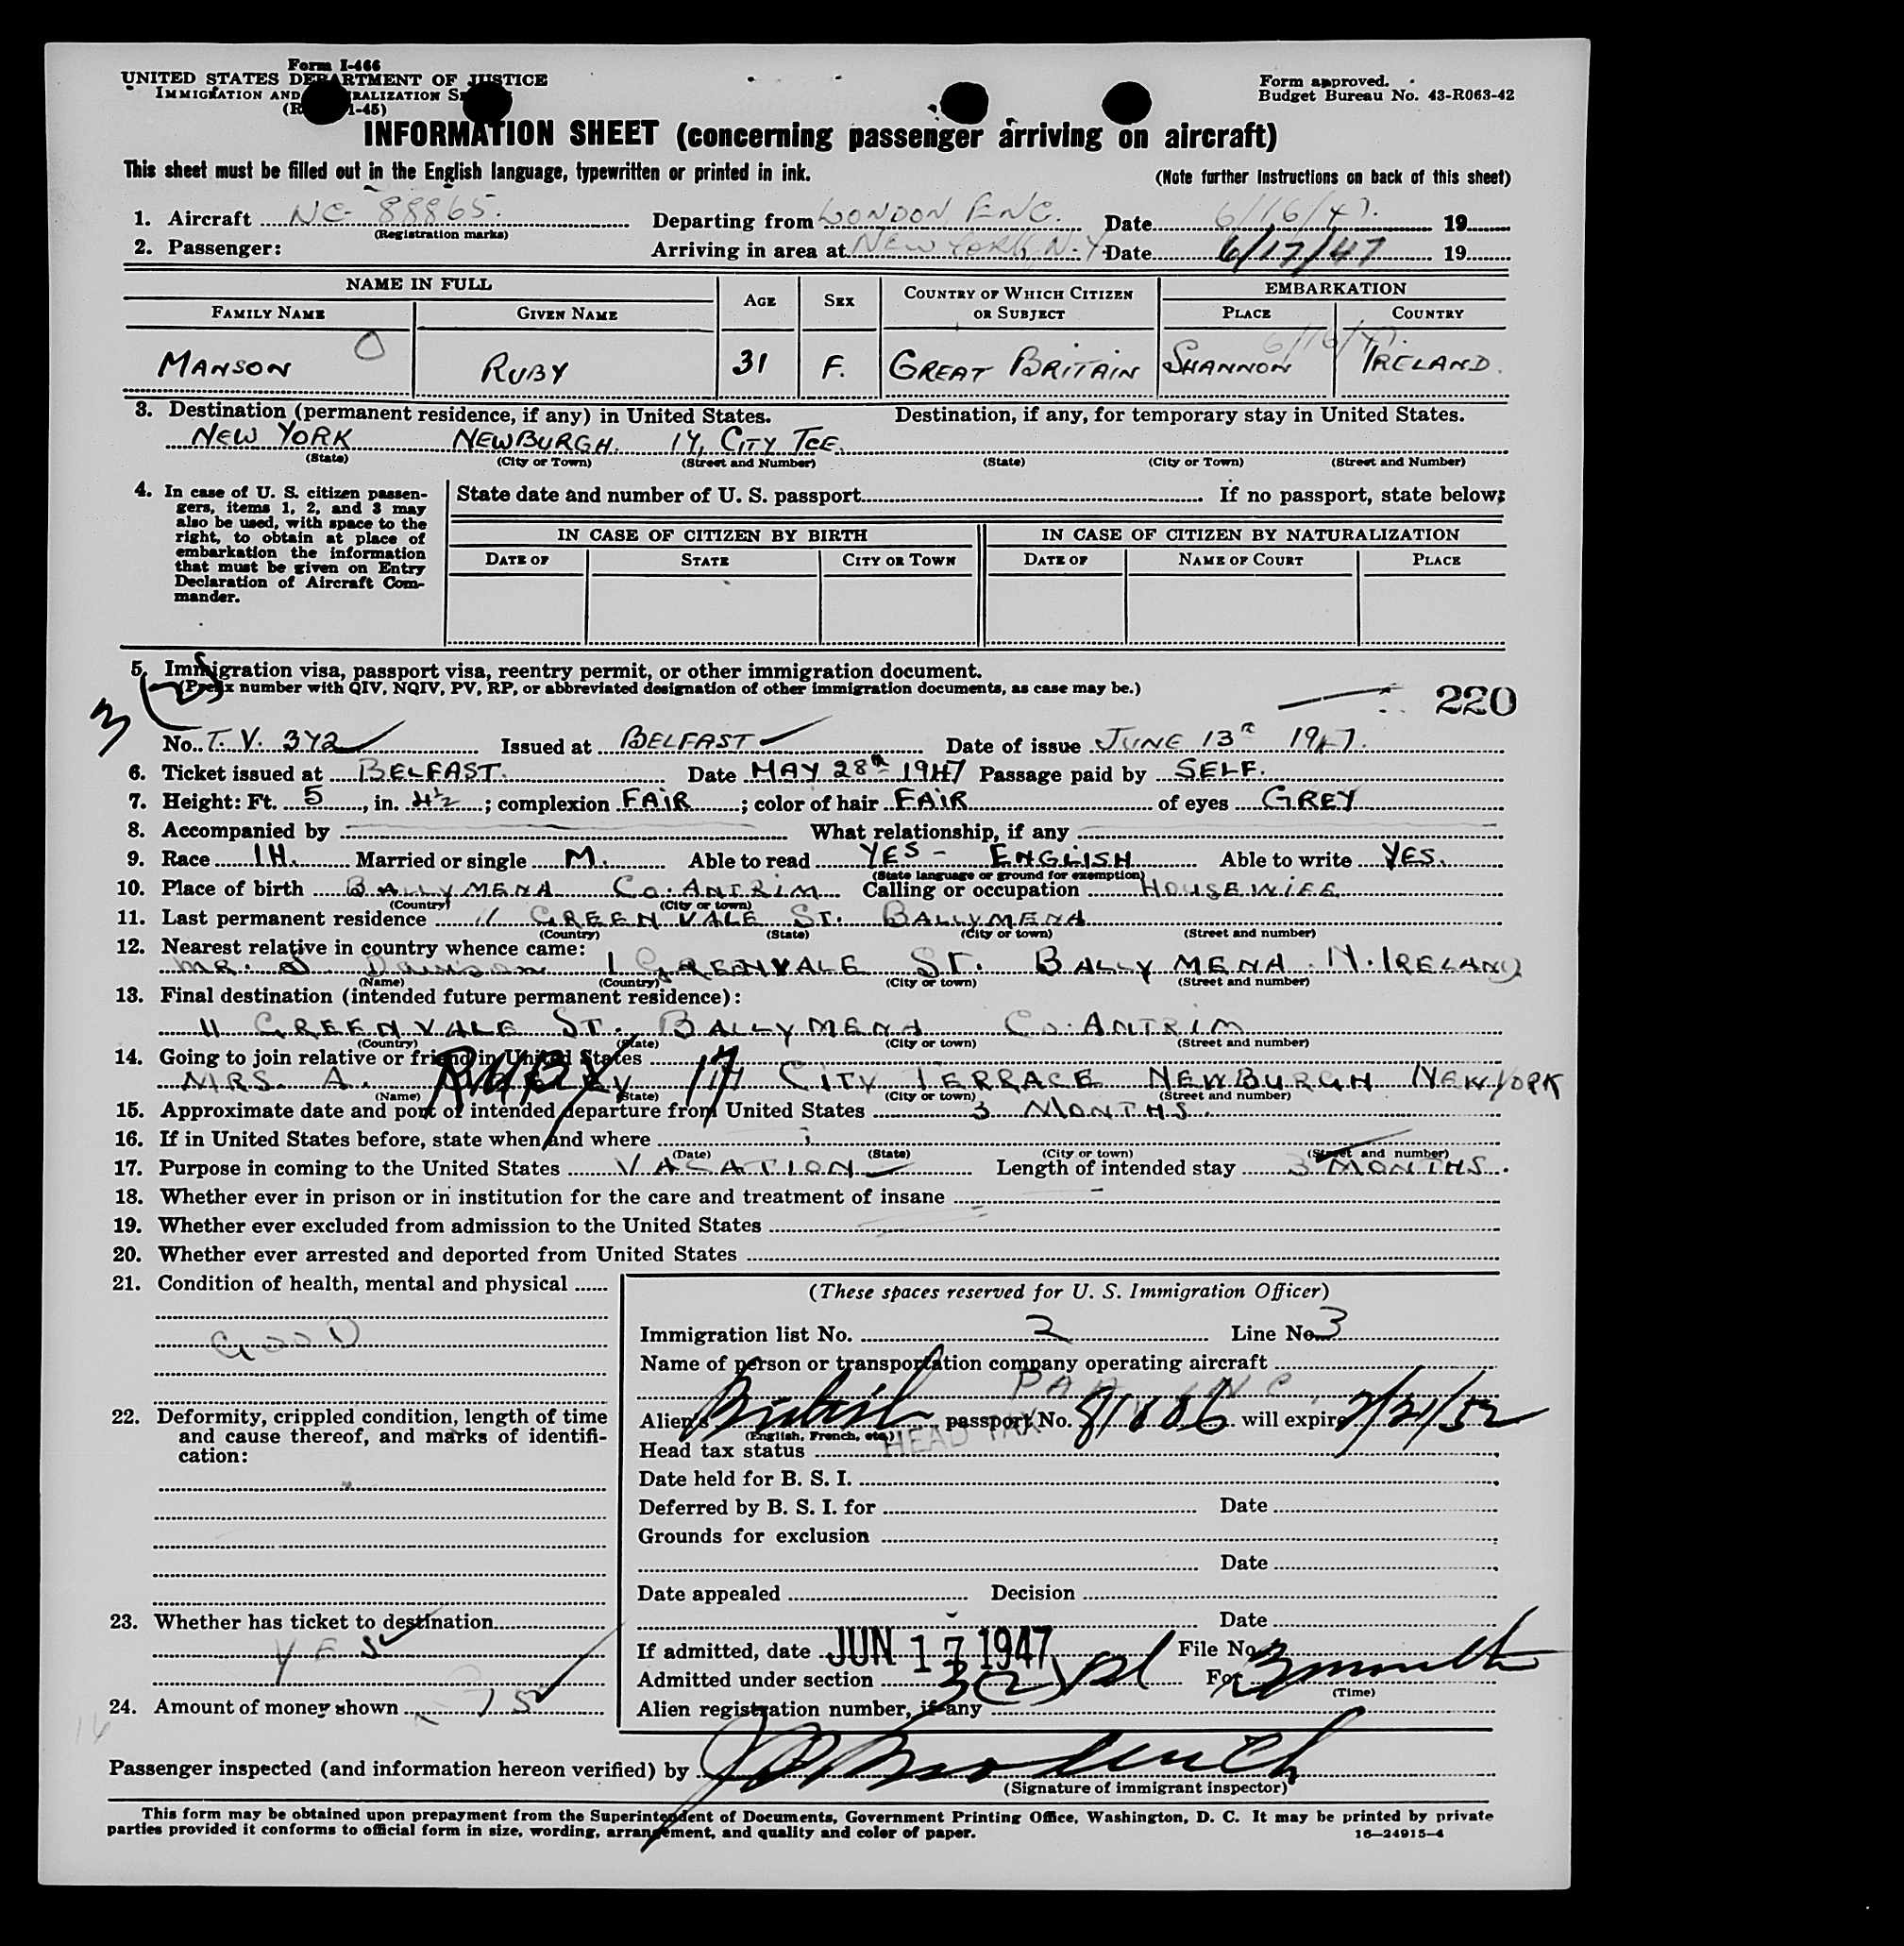 Form I-466
UNITED STATES DEPARTMENT OF JUSTICE
IMMIGRATION AND NATURALIZATION
1-45)
Form approved.
Budget Bureau No. 43-R063-42
INFORMATION SHEET (concerning passenger arriving on aircraft)
This sheet must be filled out in the English language, typewritten or printed in ink.
(Note further instructions on back of this sheet)
1. Aircraft NC- 88865. Departing from LONDON ENG. Date 6/16/47. 19
(Registration marks)
2. Passenger: Arriving in area at NEW YORK, N.Y. Date 6/17/47 19
NAME IN FULL AGE SEX COUNTRY OF WHICH CITIZEN OR SUBJECT EMBARKATION
FAMILY NAME GIVEN NAME PLACE COUNTRY
6/16/47.
MANSON RUBY 31 F. GREAT BRITAIN SHANNON IRELAND.
3. Destination (permanent residence, if any) in United States. Destination, if any, for temporary stay in United States.
NEW YORK NEWBURGH. 17, CITY TCE.
(State) (City or Town) (Street and Number) (State) (City or Town) (Street and Number)
4. In case of U. S. citizen passengers, items 1, 2, and 3 may also be used, with space to the right, to obtain at place of embarkation the information that must be given on Entry Declaration of Aircraft Commander.
State date and number of U. S. passport If no passport, state below:
IN CASE OF CITIZEN BY BIRTH IN CASE OF CITIZEN BY NATURALIZATION
DATE OF STATE CITY OR TOWN DATE OF NAME OF COURT PLACE
5. Immigration visa, passport visa, reentry permit, or other immigration document.
(Prefix number with QIV, NQIV, PV, RP, or abbreviated designation of other immigration documents, as case may be.)
220
3
No. T. V. 372 Issued at BELFAST Date of issue JUNE 13th 1947.
6. Ticket issued at BELFAST. Date MAY 28th 1947 Passage paid by SELF.
7. Height: Ft. 5, in. 4½; complexion FAIR; color of hair FAIR of eyes GREY
8. Accompanied by What relationship, if any
9. Race IH. Married or single M. Able to read YES - ENGLISH Able to write YES.
(State language or ground for exemption)
10. Place of birth BALLYMENA CO. ANTRIM Calling or occupation HOUSEWIFE
(Country) (City or town)
11. Last permanent residence 11 GREENVALE ST. BALLYMENA
(Country) (State) (City or town) (Street and number)
12. Nearest relative in country whence came:
MR. GREENVALE ST. BALLYMENA. N. IRELAND
(Name) (Country) (City or town) (Street and number)
13. Final destination (intended future permanent residence):
11 GREENVALE ST. BALLYMENA CO. ANTRIM
(Country) (State) (City or town) (Street and number)
14. Going to join relative or friend in United States
MRS. A. RUBY 17 CITY TERRACE NEWBURGH NEW YORK
(Name) (State) (City or town) (Street and number)
15. Approximate date and port of intended departure from United States 3 MONTHS.
16. If in United States before, state when and where
(Date) (State) (City or town) (Street and number)
17. Purpose in coming to the United States VACATION Length of intended stay 3 MONTHS.
18. Whether ever in prison or in institution for the care and treatment of insane
19. Whether ever excluded from admission to the United States
20. Whether ever arrested and deported from United States
21. Condition of health, mental and physical
GOOD
22. Deformity, crippled condition, length of time and cause thereof, and marks of identification:
23. Whether has ticket to destination
YES
24. Amount of money shown 75
(These spaces reserved for U. S. Immigration Officer)
Immigration list No. 2 Line No. 3
Name of person or transportation company operating aircraft
PAA INC
Alien's British passport No. will expire 2/21/52
(English, French, etc.)
HEAD TAX
Head tax status
Date held for B. S. I.
Deferred by B. S. I. for Date
Grounds for exclusion
Date
Date appealed Decision
Date
If admitted, date JUN 17 1947 File No.
Admitted under section 3(2) For 3 months
(Time)
Alien registration number, if any
Passenger inspected (and information hereon verified) by
(Signature of immigrant inspector)
This form may be obtained upon prepayment from the Superintendent of Documents, Government Printing Office, Washington, D. C. It may be printed by private
parties provided it conforms to official form in size, wording, arrangement, and quality and color of paper.
16—24915-4